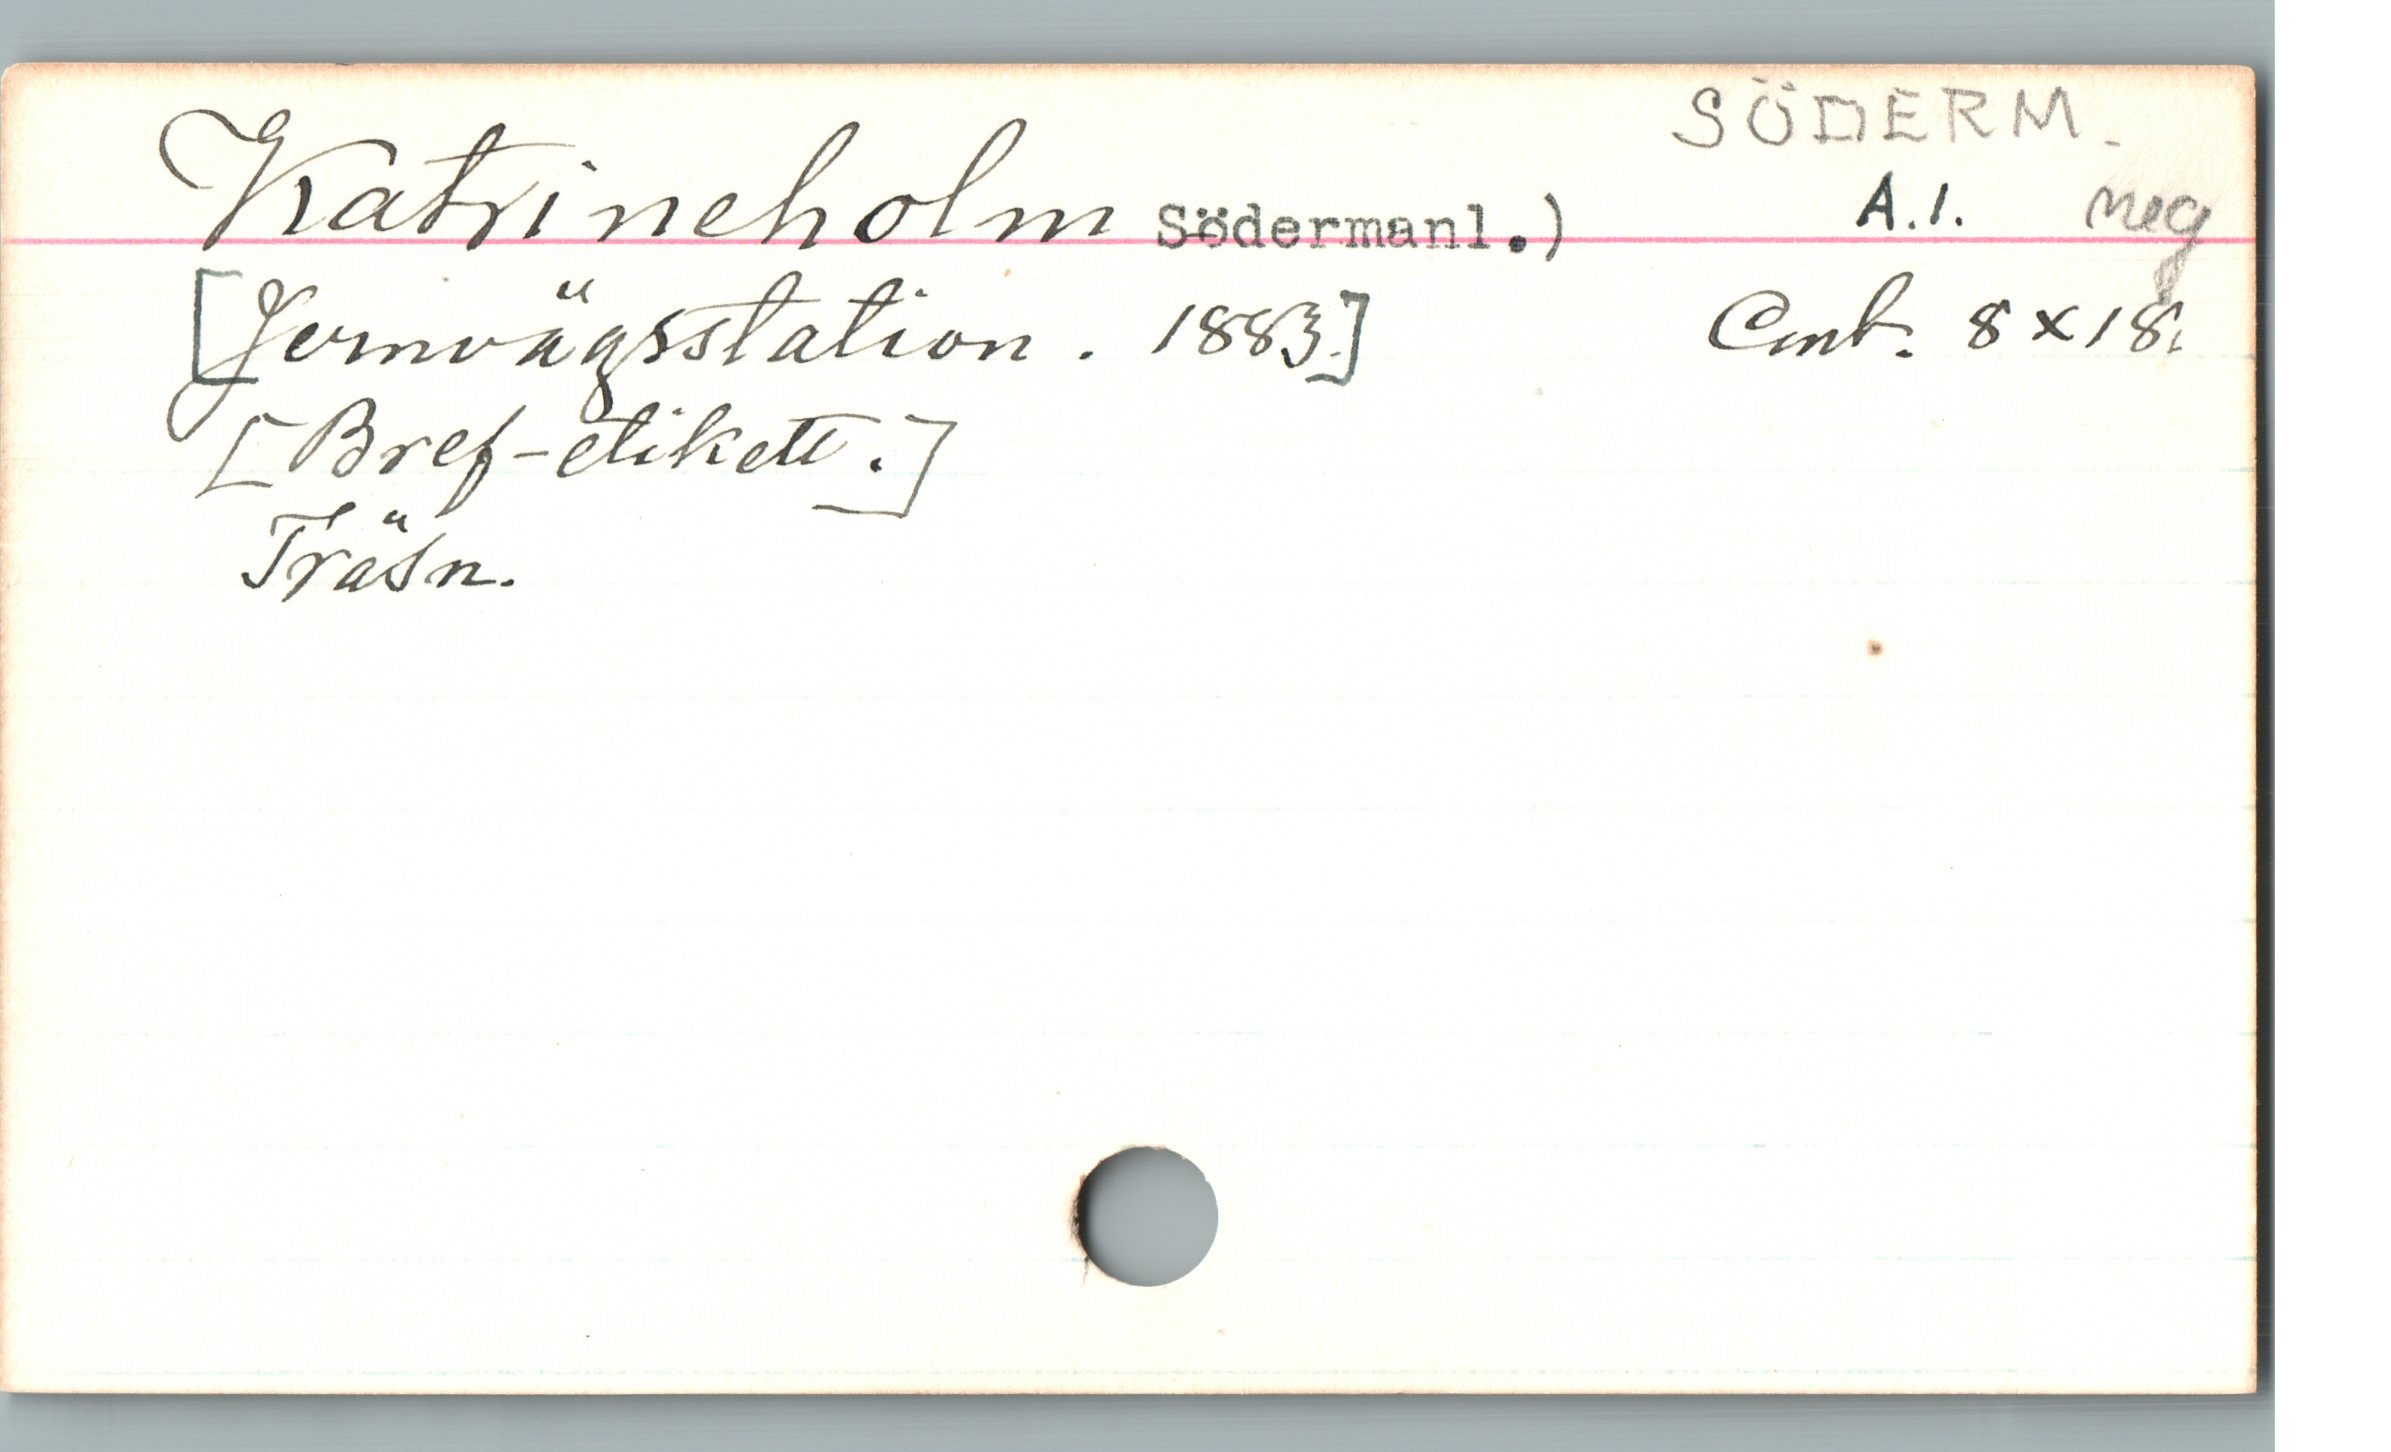 SÖDERM.
Katrineholm Södermanl.) A.1. neg
[Jernvägsstation. 1883.] Cmt. 8 x 18.
[Bref-etikett.]
Träsn.